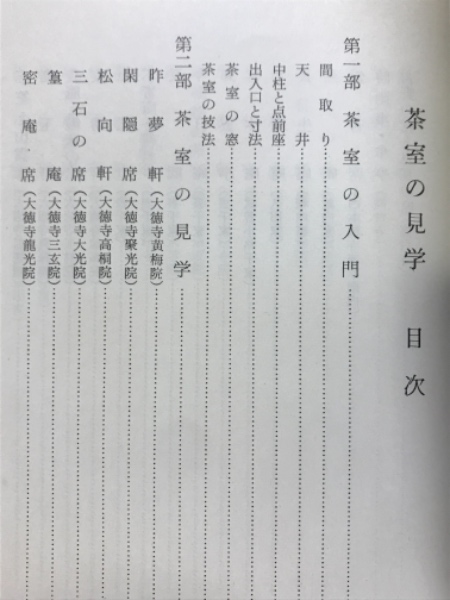 茶室の見学 目次
第一部 茶室の入門
間取り
天井
中柱と点前座
出入口と寸法
茶室の窓
茶室の技法
第二部 茶室の見学
昨夢軒(大徳寺黄梅院)
閑隠席(大徳寺聚光院)
松向軒(大徳寺高桐院)
三石の席(大徳寺大光院)
篁庵(大徳寺三玄院)
密庵席(大徳寺龍光院)